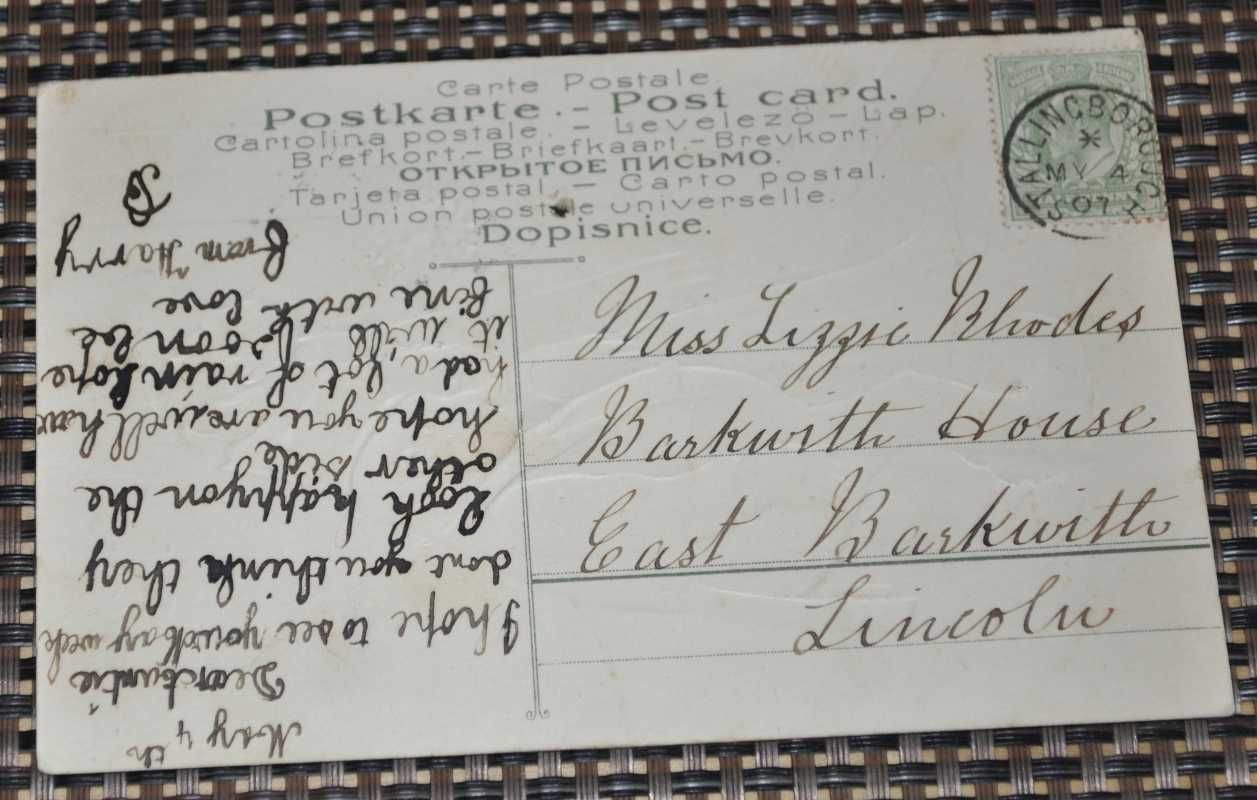 Carte Postale.
Postkarte. - Post card.
Cartolina postale. - Levelező - Lap.
Brefkort.- Briefkaart.- Brevkort.
ОТКРЫТОЕ ПИСЬМО.
Tarjeta postal. - Carto postal.
Union postale universelle.
Dopisnice.
STALLINGBOROUGH
MY 4
07
Miss Lizzie Rhodes
Barkwith House
East Barkwith
Lincoln
May 4th
Dear Auntie
I hope to see you
dont you think they
look happy on the
other side
hope you are well hav
had a lot of rain hope
it will soon be
fine with love
from Harry